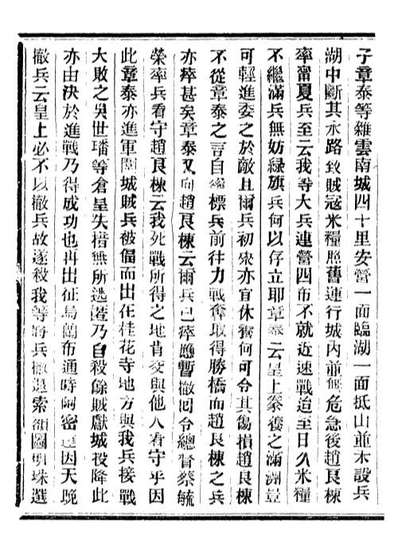 子章泰等雖雲南城四十里安營一面臨湖一面抵山並未設兵
湖中斷其水路致賊冠米糧照舊運行城內並無危急後趙良棟
率甯夏兵至云我等大兵連營四布不就近速戰迨至日久米糧
不繼滿兵無妨綠旗兵何以存立耶章泰云皇上豢養之滿洲豈
可輕進委之於敵且爾兵初來亦宜休養何可令其傷損趙良棟
不從章泰之言自總標兵前往力戰奪取得勝橋而趙良棟之兵
亦瘁甚矣章泰又向趙良棟云爾兵已瘁應暫撤回令總督蔡毓
榮率兵看守趙良棟云我死戰所得之地肯交與他人看守乎因
此章泰亦進軍圍城賊兵被偪而出在桂花寺地方與我兵接戰
大敗之吳世璠等倉皇失措無所逃遁乃自殺餘賊獻城投降此
亦由決於進戰乃得成功也再出征烏蘭布通時阿密達因天晚
撤兵云皇上必不以撤兵故遂殺我等將兵撤退索額圖明珠選